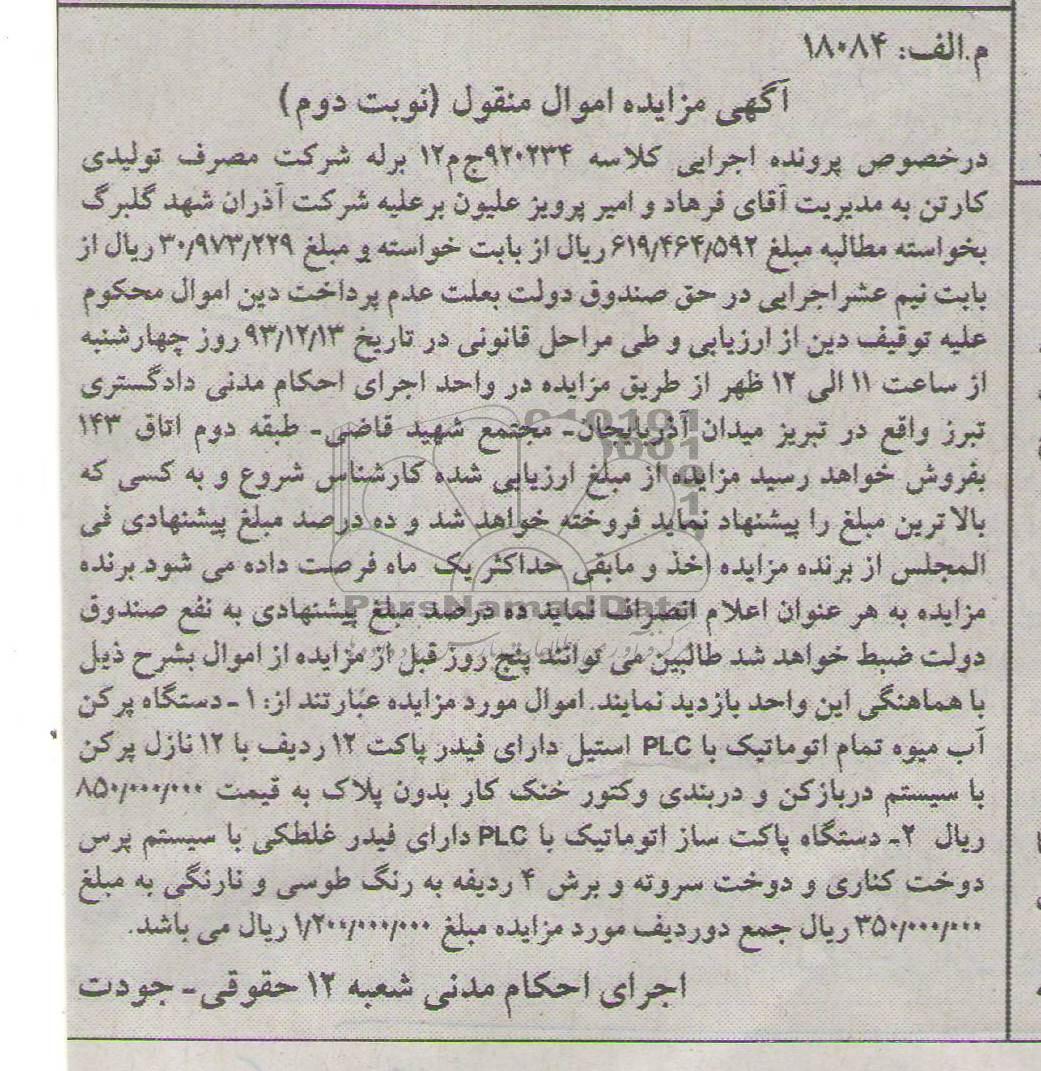 م.الف: ۱۸۰۸۴
آگهی مزایده اموال منقول (نوبت دوم)
درخصوص پرونده اجرایی کلاسه ۹۲۰۲۳۴ج‌م۱۲ برله شرکت مصرف تولیدی
کارتن به مدیریت آقای فرهاد و امیر پرویز علیون برعلیه شرکت آذران شهد گلبرگ
بخواسته مطالبه مبلغ ۶۱۹/۴۶۴/۵۹۲ ریال از بابت خواسته و مبلغ ۳۰/۹۷۳/۲۲۹ ریال از
بابت نیم عشراجرایی در حق صندوق دولت بعلت عدم پرداخت دین اموال محکوم
علیه توقیف دین از ارزیابی و طی مراحل قانونی در تاریخ ۹۳/۱۲/۱۳ روز چهارشنبه
از ساعت ۱۱ الی ۱۲ ظهر از طریق مزایده در واحد اجرای احکام مدنی دادگستری
تبرز واقع در تبریز میدان آذربایجان- مجتمع شهید قاضی- طبقه دوم اتاق ۱۴۳
بفروش خواهد رسید مزایده از مبلغ ارزیابی شده کارشناس شروع و به کسی که
بالاترین مبلغ را پیشنهاد نماید فروخته خواهد شد و ده درصد مبلغ پیشنهادی فی
المجلس از برنده مزایده اخذ و مابقی حداکثر یک ماه فرصت داده می شود برنده
مزایده به هر عنوان اعلام انصراف نماید ده درصد مبلغ پیشنهادی به نفع صندوق
ParsNamadData
دولت ضبط خواهد شد طالبین می توانند پنج روز قبل از مزایده از اموال بشرح ذیل
با هماهنگی این واحد بازدید نمایند. اموال مورد مزایده عبارتند از: ۱- دستگاه پرکن
آب میوه تمام اتوماتیک با PLC استیل دارای فیدر پاکت ۱۲ ردیف با ۱۲ نازل پرکن
با سیستم دربازکن و دربندی وکتور خنک کار بدون پلاک به قیمت ۸۵۰/۰۰۰/۰۰۰
ریال ۲- دستگاه پاکت ساز اتوماتیک با PLC دارای فیدر غلطکی با سیستم پرس
دوخت کناری و دوخت سروته و برش ۴ ردیفه به رنگ طوسی و نارنگی به مبلغ
۳۵۰/۰۰۰/۰۰۰ ریال جمع دوردیف مورد مزایده مبلغ ۱/۲۰۰/۰۰۰/۰۰۰ ریال می باشد.
اجرای احکام مدنی شعبه ۱۲ حقوقی- جودت